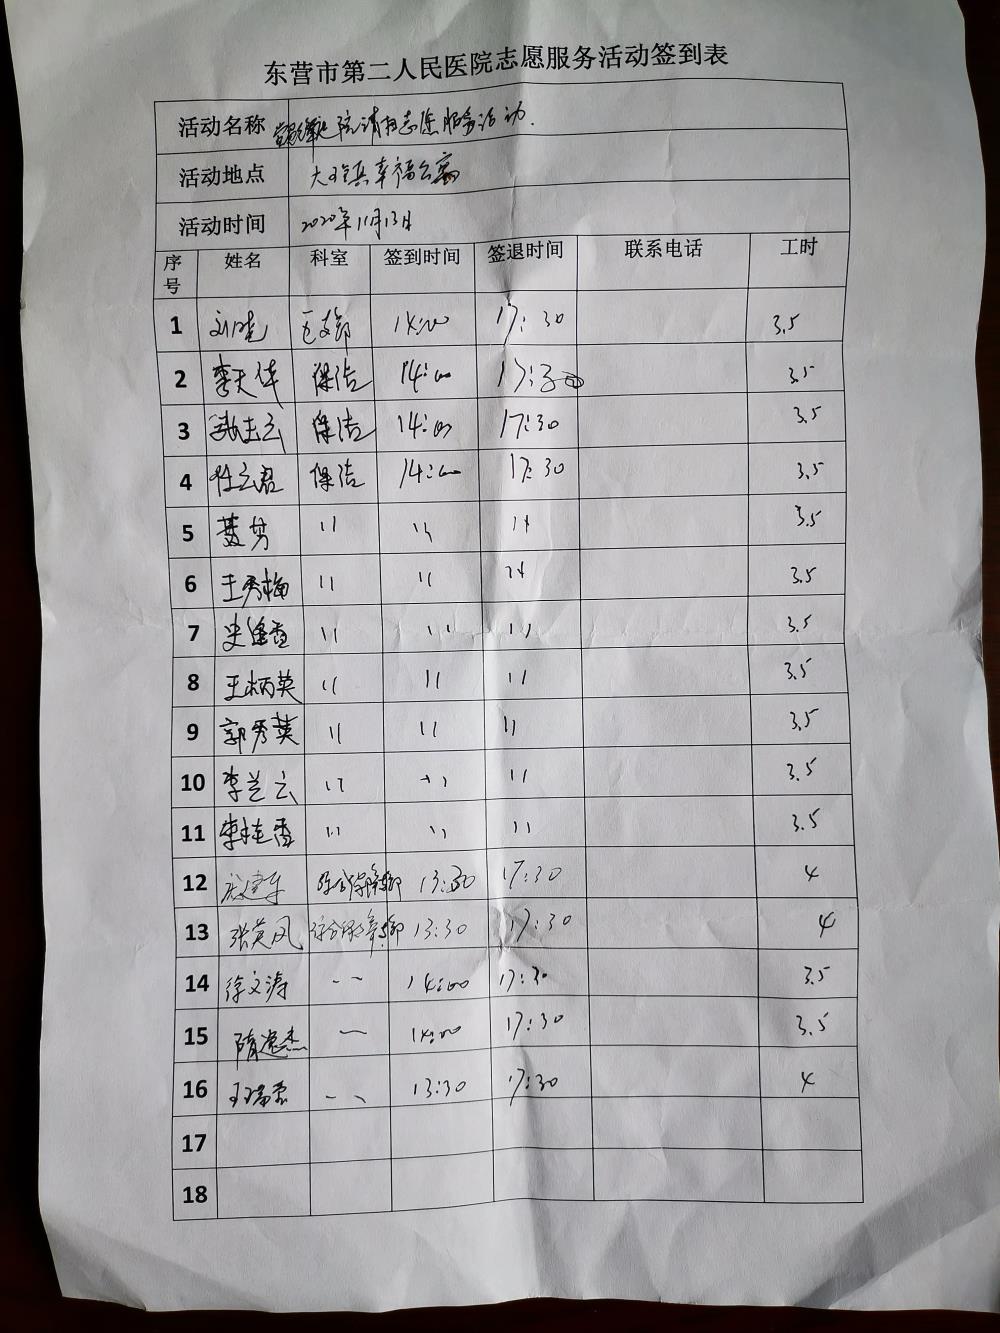 东营市第二人民医院志愿服务活动签到表
活动名称 院清扫志愿服务活动.
活动地点 大王镇幸福公寓
活动时间 2020年11月13日
序号 姓名 科室 签到时间 签退时间 联系电话 工时
1 刘 14:00 17:30 3.5
2 李天华 保洁 14:00 17:30 3.5
3 云 保洁 14:00 17:30 3.5
4 任云君 保洁 14:00 17:30 3.5
5 〃 〃 〃 3.5
6 王秀梅 〃 〃 〃 3.5
7 史 香 〃 〃 〃 3.5
8 王炳英 〃 〃 〃 3.5
9 郭秀英 〃 〃 〃 3.5
10 李兰云 〃 〃 〃 3.5
11 李桂香 〃 〃 〃 3.5
12 13:30 17:30 4
13 张英风 13:30 17:30 4
14 徐文涛 14:00 17:30 3.5
15 隋 杰 14:00 17:30 3.5
16 王瑞 13:30 17:30 4
17
18